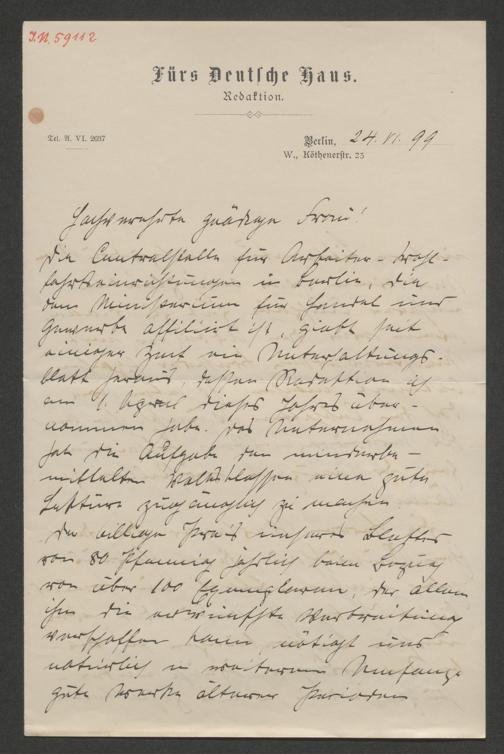 I.N. 59112
Fürs Deutsche Haus.
Redaktion.
Tel. A. VI. 2637
Berlin, 24. VI. 99
W., Köthenerstr. 23
Hochverehrte gnädige Frau!
Die Centralstelle für Arbeiter-Wohl-
fahrtseinrichtungen in Berlin, die
dem Ministerium für Handel und
Gewerbe affiliirt ist, giebt seit
einiger Zeit ein Unterhaltungs-
blatt heraus, dessen Redaktion ich
am 1. April dieses Jahres über-
nommen habe. Das Unternehmen
hat die Aufgabe den minderbe-
mittelten Volksklassen eine gute
Lektüre zugänglich zu machen.
Der billige Preis unseres Blattes
von 80 Pfennig jährlich beim Bezug
von über 100 Exemplaren, der allein
ihm die erwünschte Verbreitung
verschaffen kann, nötigt uns
natürlich in weiterem Umfange
gute Werke älterer Perioden